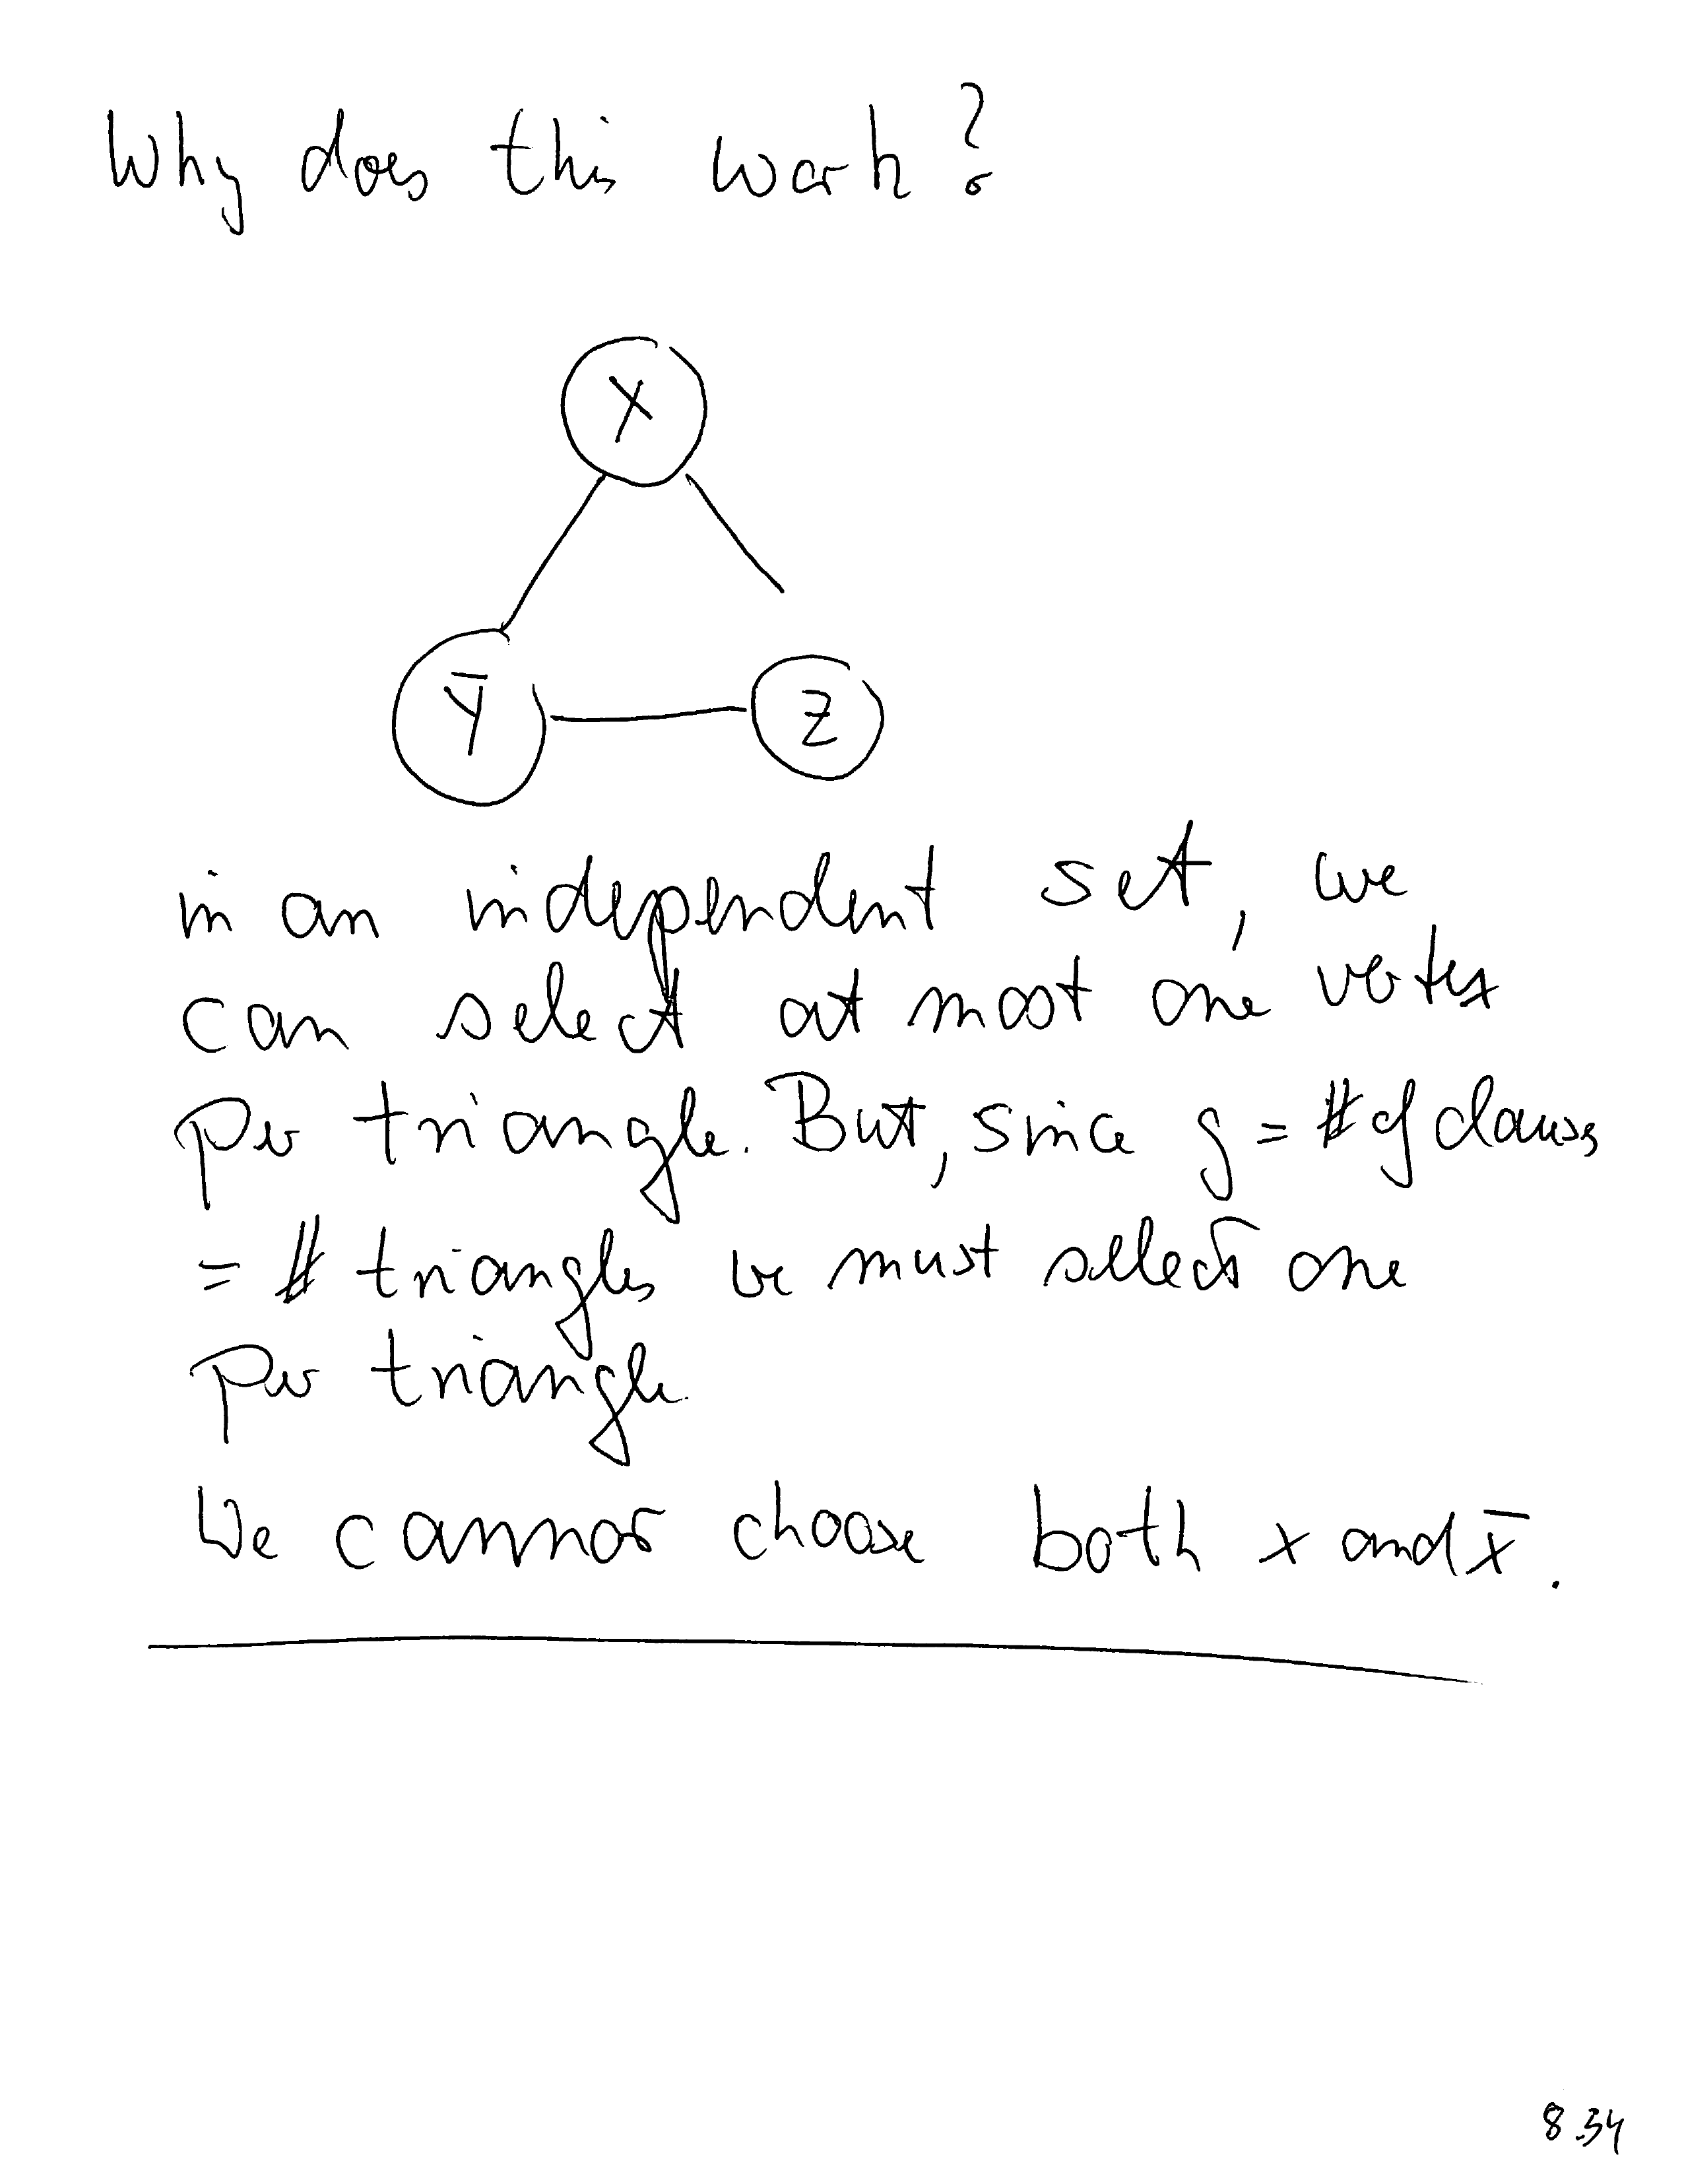 Why does this work?
X
Ȳ
Z
in an independent set, we
can select at most one vertex
per triangle. But, since g = # of clauses
= # triangles we must select one
per triangle.
We cannot choose both x and x̄.
8.34